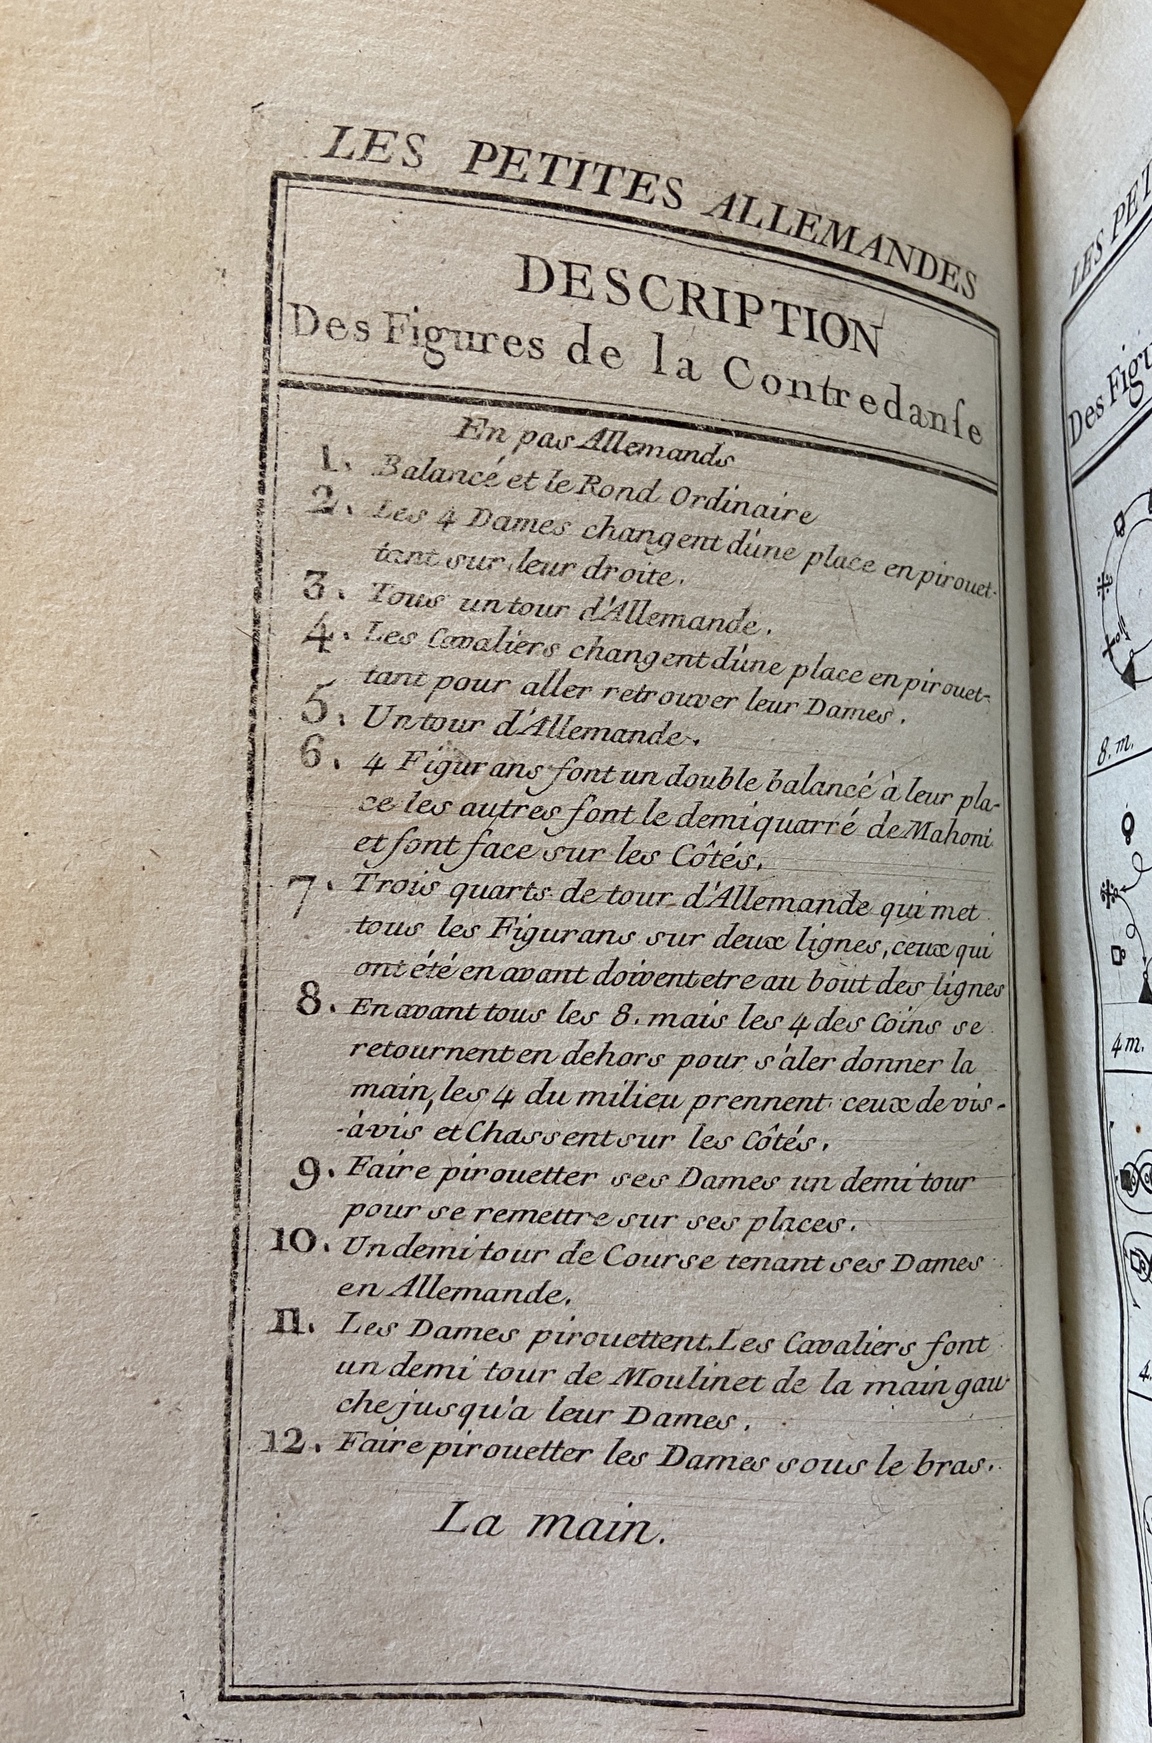 LES PETITES ALLEMANDES
DESCRIPTION
Des Figures de la Contredanſe
En pas Allemands
1. Balancé et le Rond Ordinaire
2. Les 4 Dames changent d'une place en pirouet-
tant sur leur droite.
3. Tous un tour d'Allemande.
4. Les Cavaliers changent d'une place en pirouet-
tant pour aller retrouver leur Dames.
5. Un tour d'Allemande.
6. 4 Figurans font un double balancé à leur pla-
ce les autres font le demi quarré de Mahoni
et font face sur les Côtés.
7. Trois quarts de tour d'Allemande qui met
tous les Figurans sur deux lignes, ceux qui
ont été en avant doivent etre au bout des lignes
8. En avant tous les 8. mais les 4 des Coins se
retournent en dehors pour s'aler donner la
main, les 4 du milieu prennent ceux de vis-
-à vis et Chassent sur les Côtés.
9. Faire pirouetter ses Dames un demi tour
pour se remettre sur ses places.
10. Un demi tour de Course tenant ses Dames
en Allemande.
11. Les Dames pirouettent. Les Cavaliers font
un demi tour de Moulinet de la main gau
che jusqu'a leur Dames.
12. Faire pirouetter les Dames sous le bras.
La main.
LES PET
Des Figu
8. m.
4 m.
4.